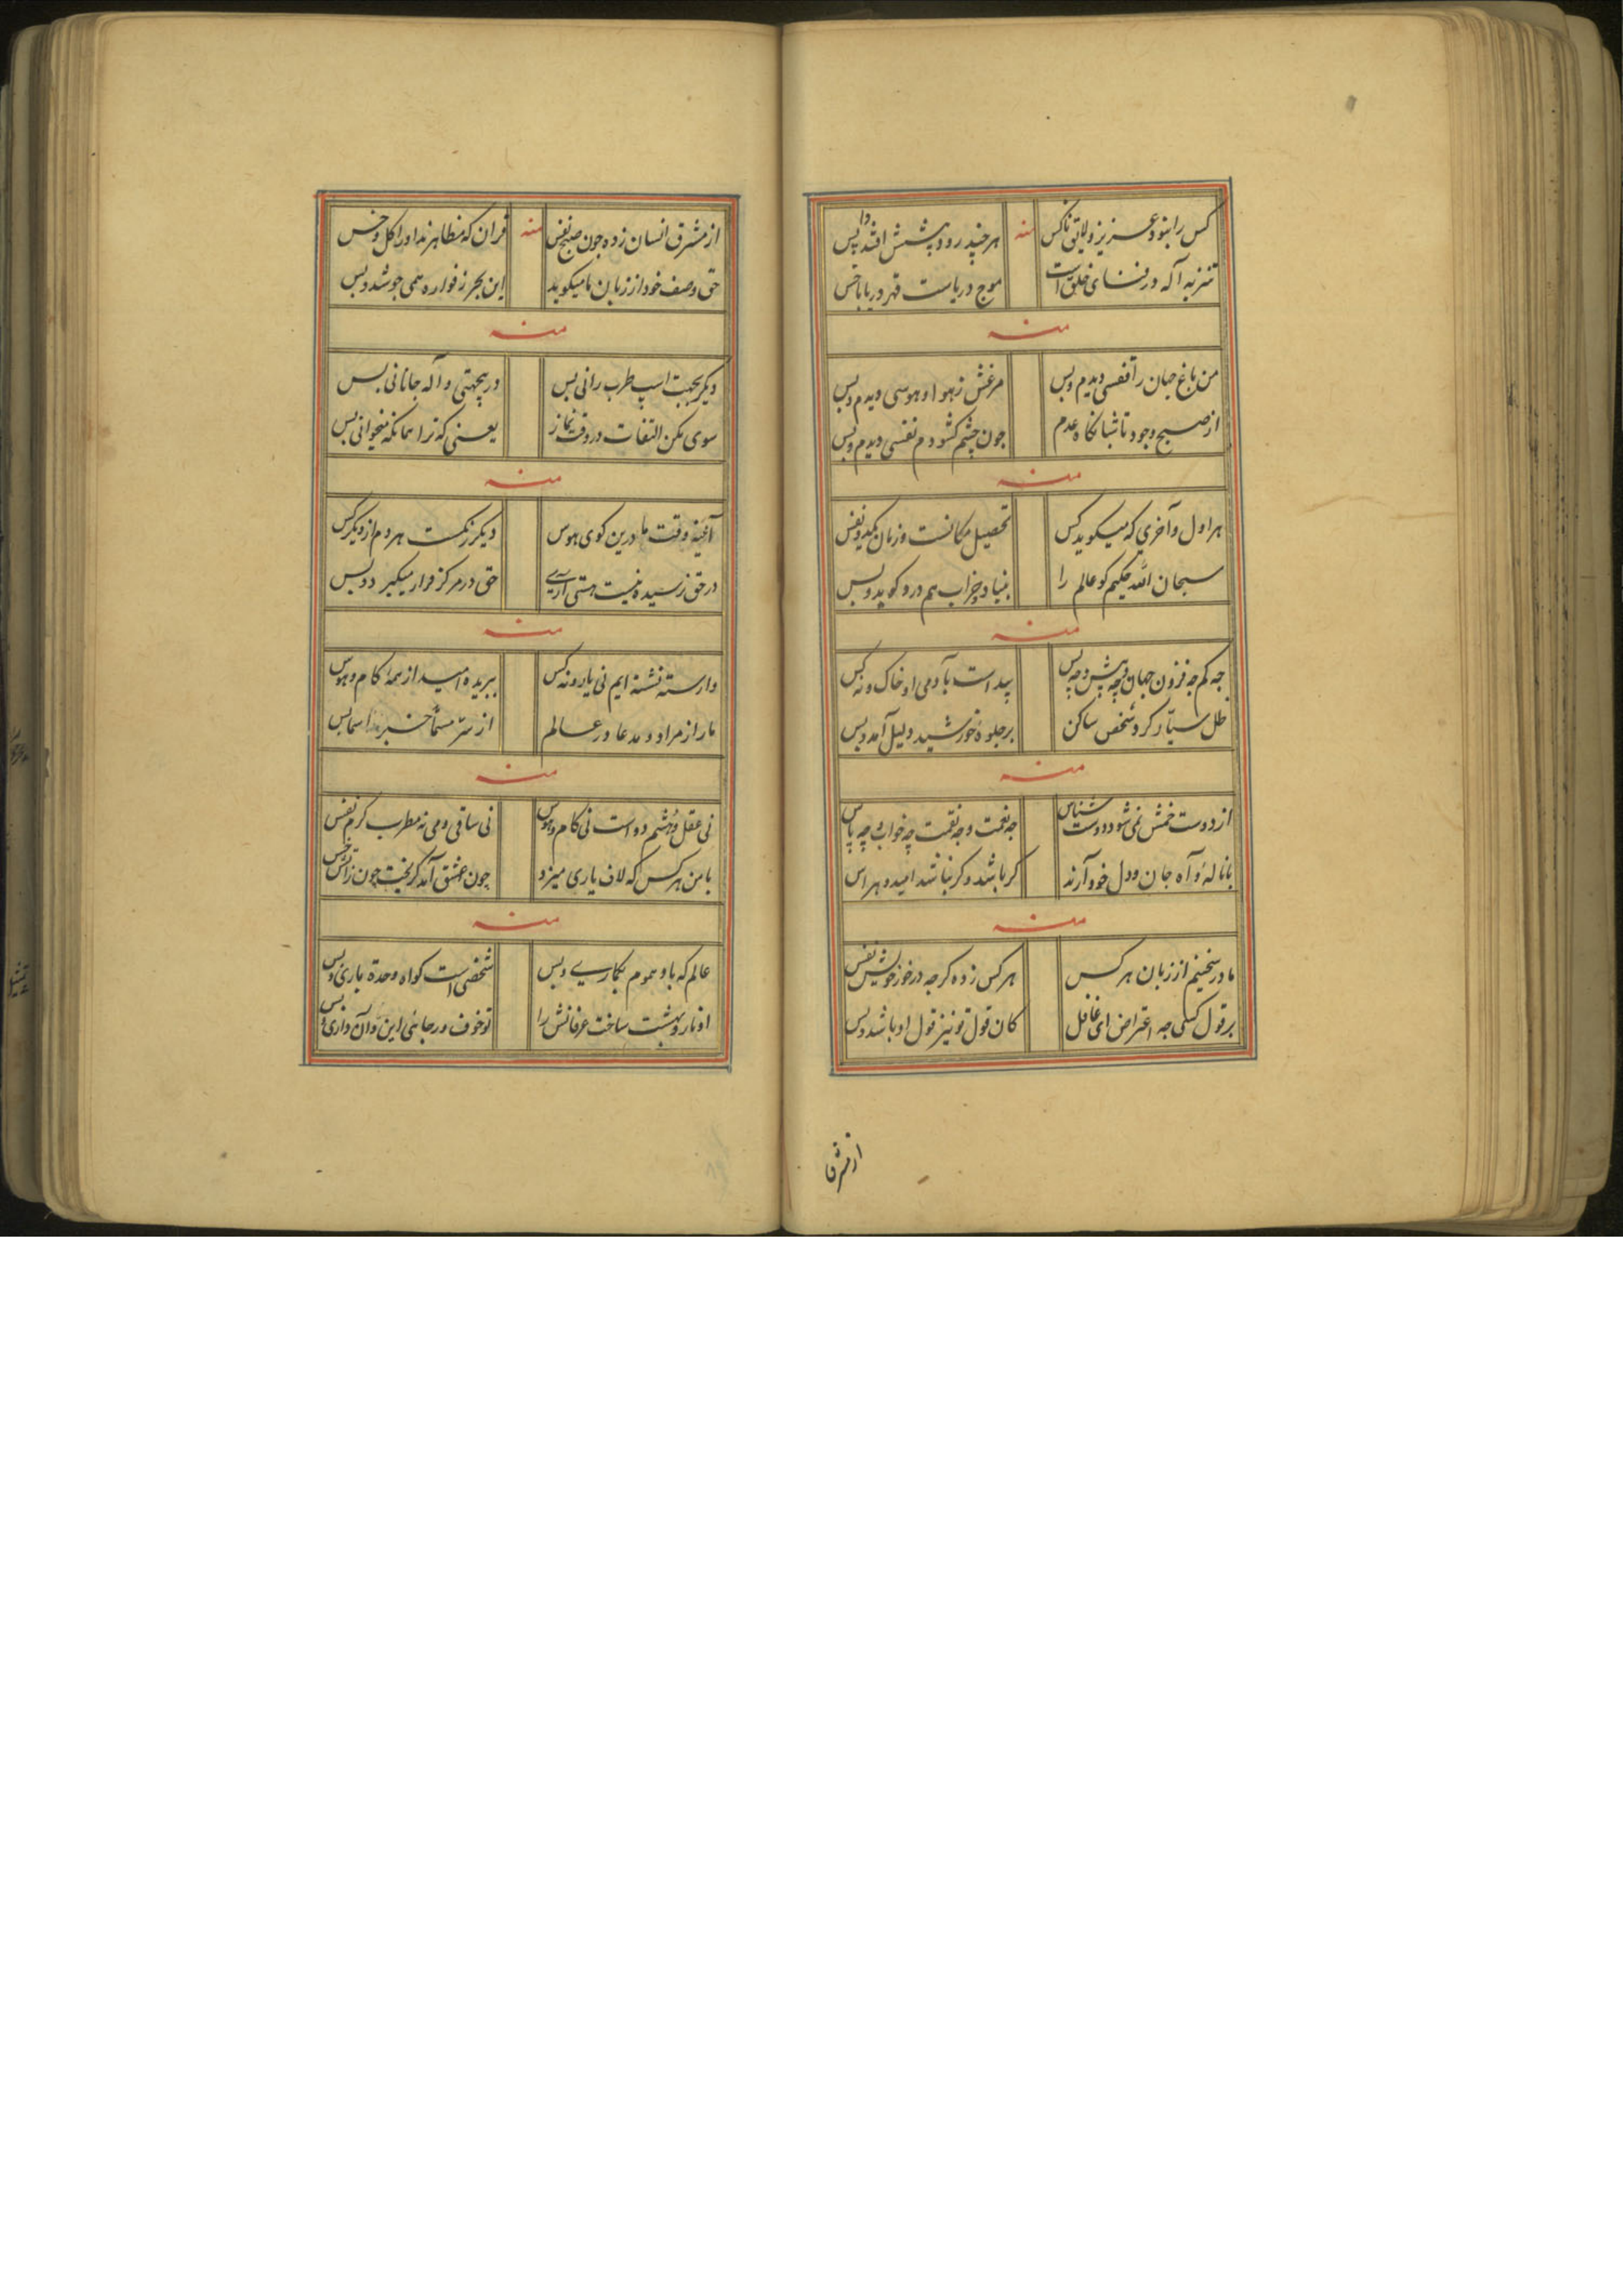 کس را نبود عزیز ولایق ناکس
منه
هر چند رود به پشش افتد واپس
تنزیه آکه در فنای خلق است
موج دریاست قهر دریا با خس
منه
من باغ جهان را قفسی دیدم وبس
مرغش ز هوا وهوسی دیدم وبس
از صبح وجود تا شبانکاه عدم
جون چشم کشودم نفسی دیدم وبس
منه
هر اول وآخری که میکوید کس
تحصیل مکانست وزمان یکدو نفس
سبحان الله حکیم کو عالم را
بنیاد وخراب هم درو کوید وبس
منه
جه کم جه فزون جهان چه پیش وچه پس
پیداست بآدمی او خاک ونه کس
ظل سیار کرد وشخص ساکن
بر جلوهٔ خورشید دلیل آمد وبس
منه
از دوست خمش نمی شود دوست شناس
جه نعمت وجه نقمت چه خواب وچه پاس
با نالهٔ وآه جان ودل خود آرند
کر باشد وکر نباشد امید وهراس
منه
ما در سخنیم از زبان هر کس
هر کس زده کرجه در خور خویش نفس
بر قول کسی جه اعتراض ای غافل
کان قول تو نیز قول او باشد وبس
از مشرق
از مشرق انسان زده جون صبح نفس
منه
قران که مظاهرند او را کل وخس
حق وصف خود از زبان ما میکوید
این بحر ز فواره همی جوشد وبس
منه
دیکر بجهت اسپ طرب رانی بس
در بیجهتی واله جانانی بس
سوی مکن التفات در وقت نماز
یعنی که ترا همانکه میخوانی بس
منه
آئینه وقت ما درین کوی هوس
دیکر رنکست هر دم از دیکر کس
در حق نرسیده نیست هستی آری
حق در مرکز قرار میکیرد وبس
منه
وارسته نشسته ایم نی یار ونه کس
ببریده امید از همه کام وهوس
ما را ز مراد ومدعا در عالم
از سر مسما خبر اسما بس
منه
نی عقل وحشم دواست نی کام وهوس
نی ساقی ومی نه مطرب کرم نفس
با من هر کس که لاف یاری میزد
چون عشق آمد کریخت چون زاتش خس
منه
عالم که باو همدم بکاری وبس
شخصی است کواه وحدة باری وبس
او نار وبهشت ساخت عرفانش را
تو خوف ورجائی این وآن داری وبس